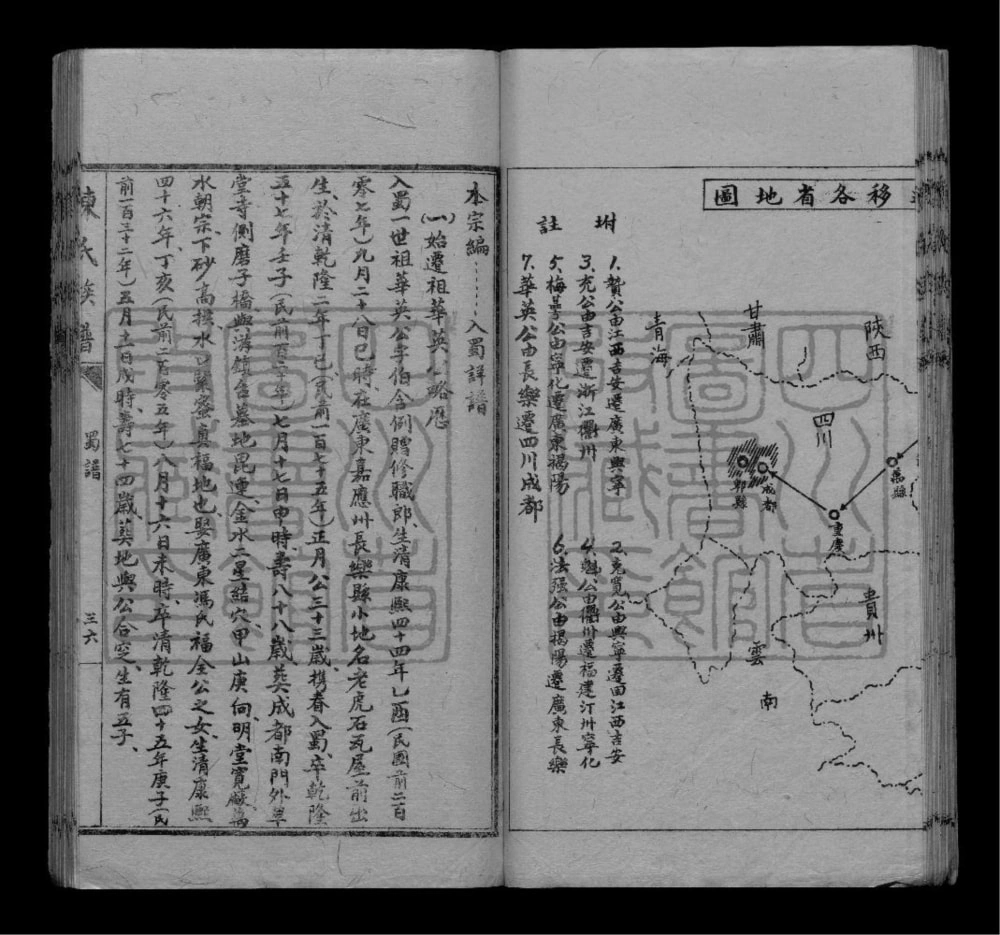 移各省地圖
坿註
1.贊公由江西吉安遷廣東興寧
2.克寬公由興寧遷回江西吉安
3.充公由吉安遷浙江衢州
4.魁公由衢州遷福建汀州寧化
5.梅㝵公由寧化遷廣東揭陽
6.法强公由揭陽遷廣東長樂
7.華英公由長樂遷四川成都
陝西
甘肅
青海
四川
萬縣
成都
郫縣
重慶
貴州
雲南
本宗編……入蜀詳譜
(一)始遷祖華英公略歷
入蜀一世祖華英公字伯含例贈修職郎、生清康熙四十四年乙酉(民國前二百
零七年)九月二十八日巳時在廣東嘉應州長樂縣小地名老虎石瓦屋前出
生、於清乾隆二年丁巳(民前一百七十五年)正月公三十三歲携眷入蜀、卒乾隆
五十七年壬子(民前百二十年)七月十七日申時壽八十八歲葬成都南門外草
堂寺側磨子橋與潘鎮台墓地毘連、金水二星結穴甲山庚向明堂寬敞、萬
水朝宗、下砂高攔水口緊密真福地也、娶廣東馮氏福全公之女、生清康熙
四十六年、丁亥(民前二百零五年)八月十六日未時、卒清乾隆四十五年庚子(民
前一百三十二年)五月十二日戌時壽七十四歲、葬地與公合窆、生有五子、
陳氏族譜
蜀譜
三六
四川省圖書館